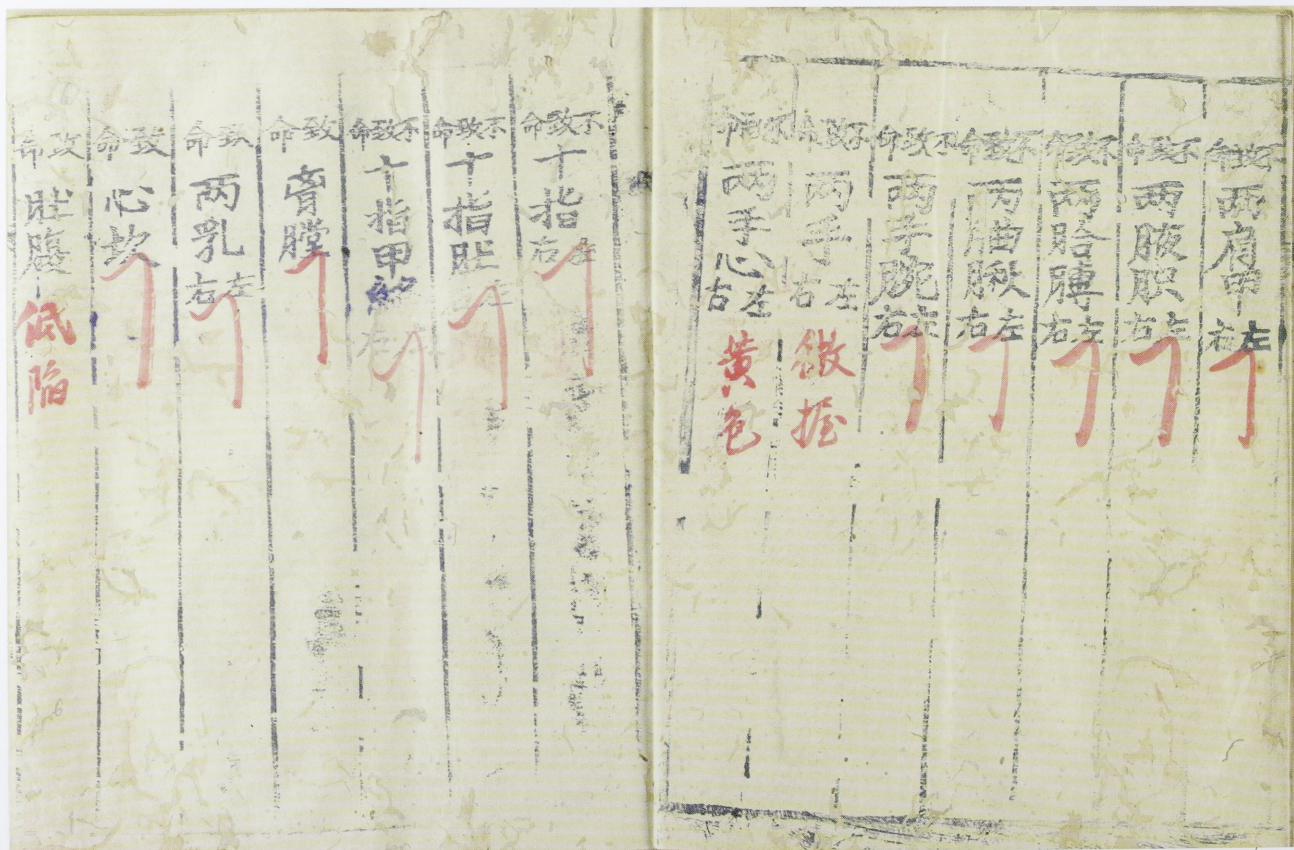 不致命 两肩甲 左右
不致命 两腋胑 左右
不致命 两胎膊 左右
不致命 两䏚脉 左右
不致命 两手腕 左右
不致命 两手 左右 微握
不致命 两手心 左右 黄色
不致命 十指 左右
不致命 十指肚 左右
不致命 十指甲 左右
致命 胷膛
致命 两乳 左右
致命 心坎
致命 肚腹 低陷